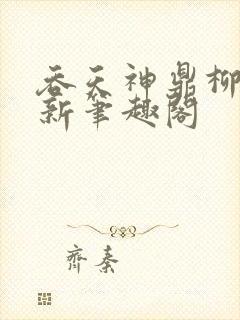 吞天神鼎柳
新笔趣阁
齐秦